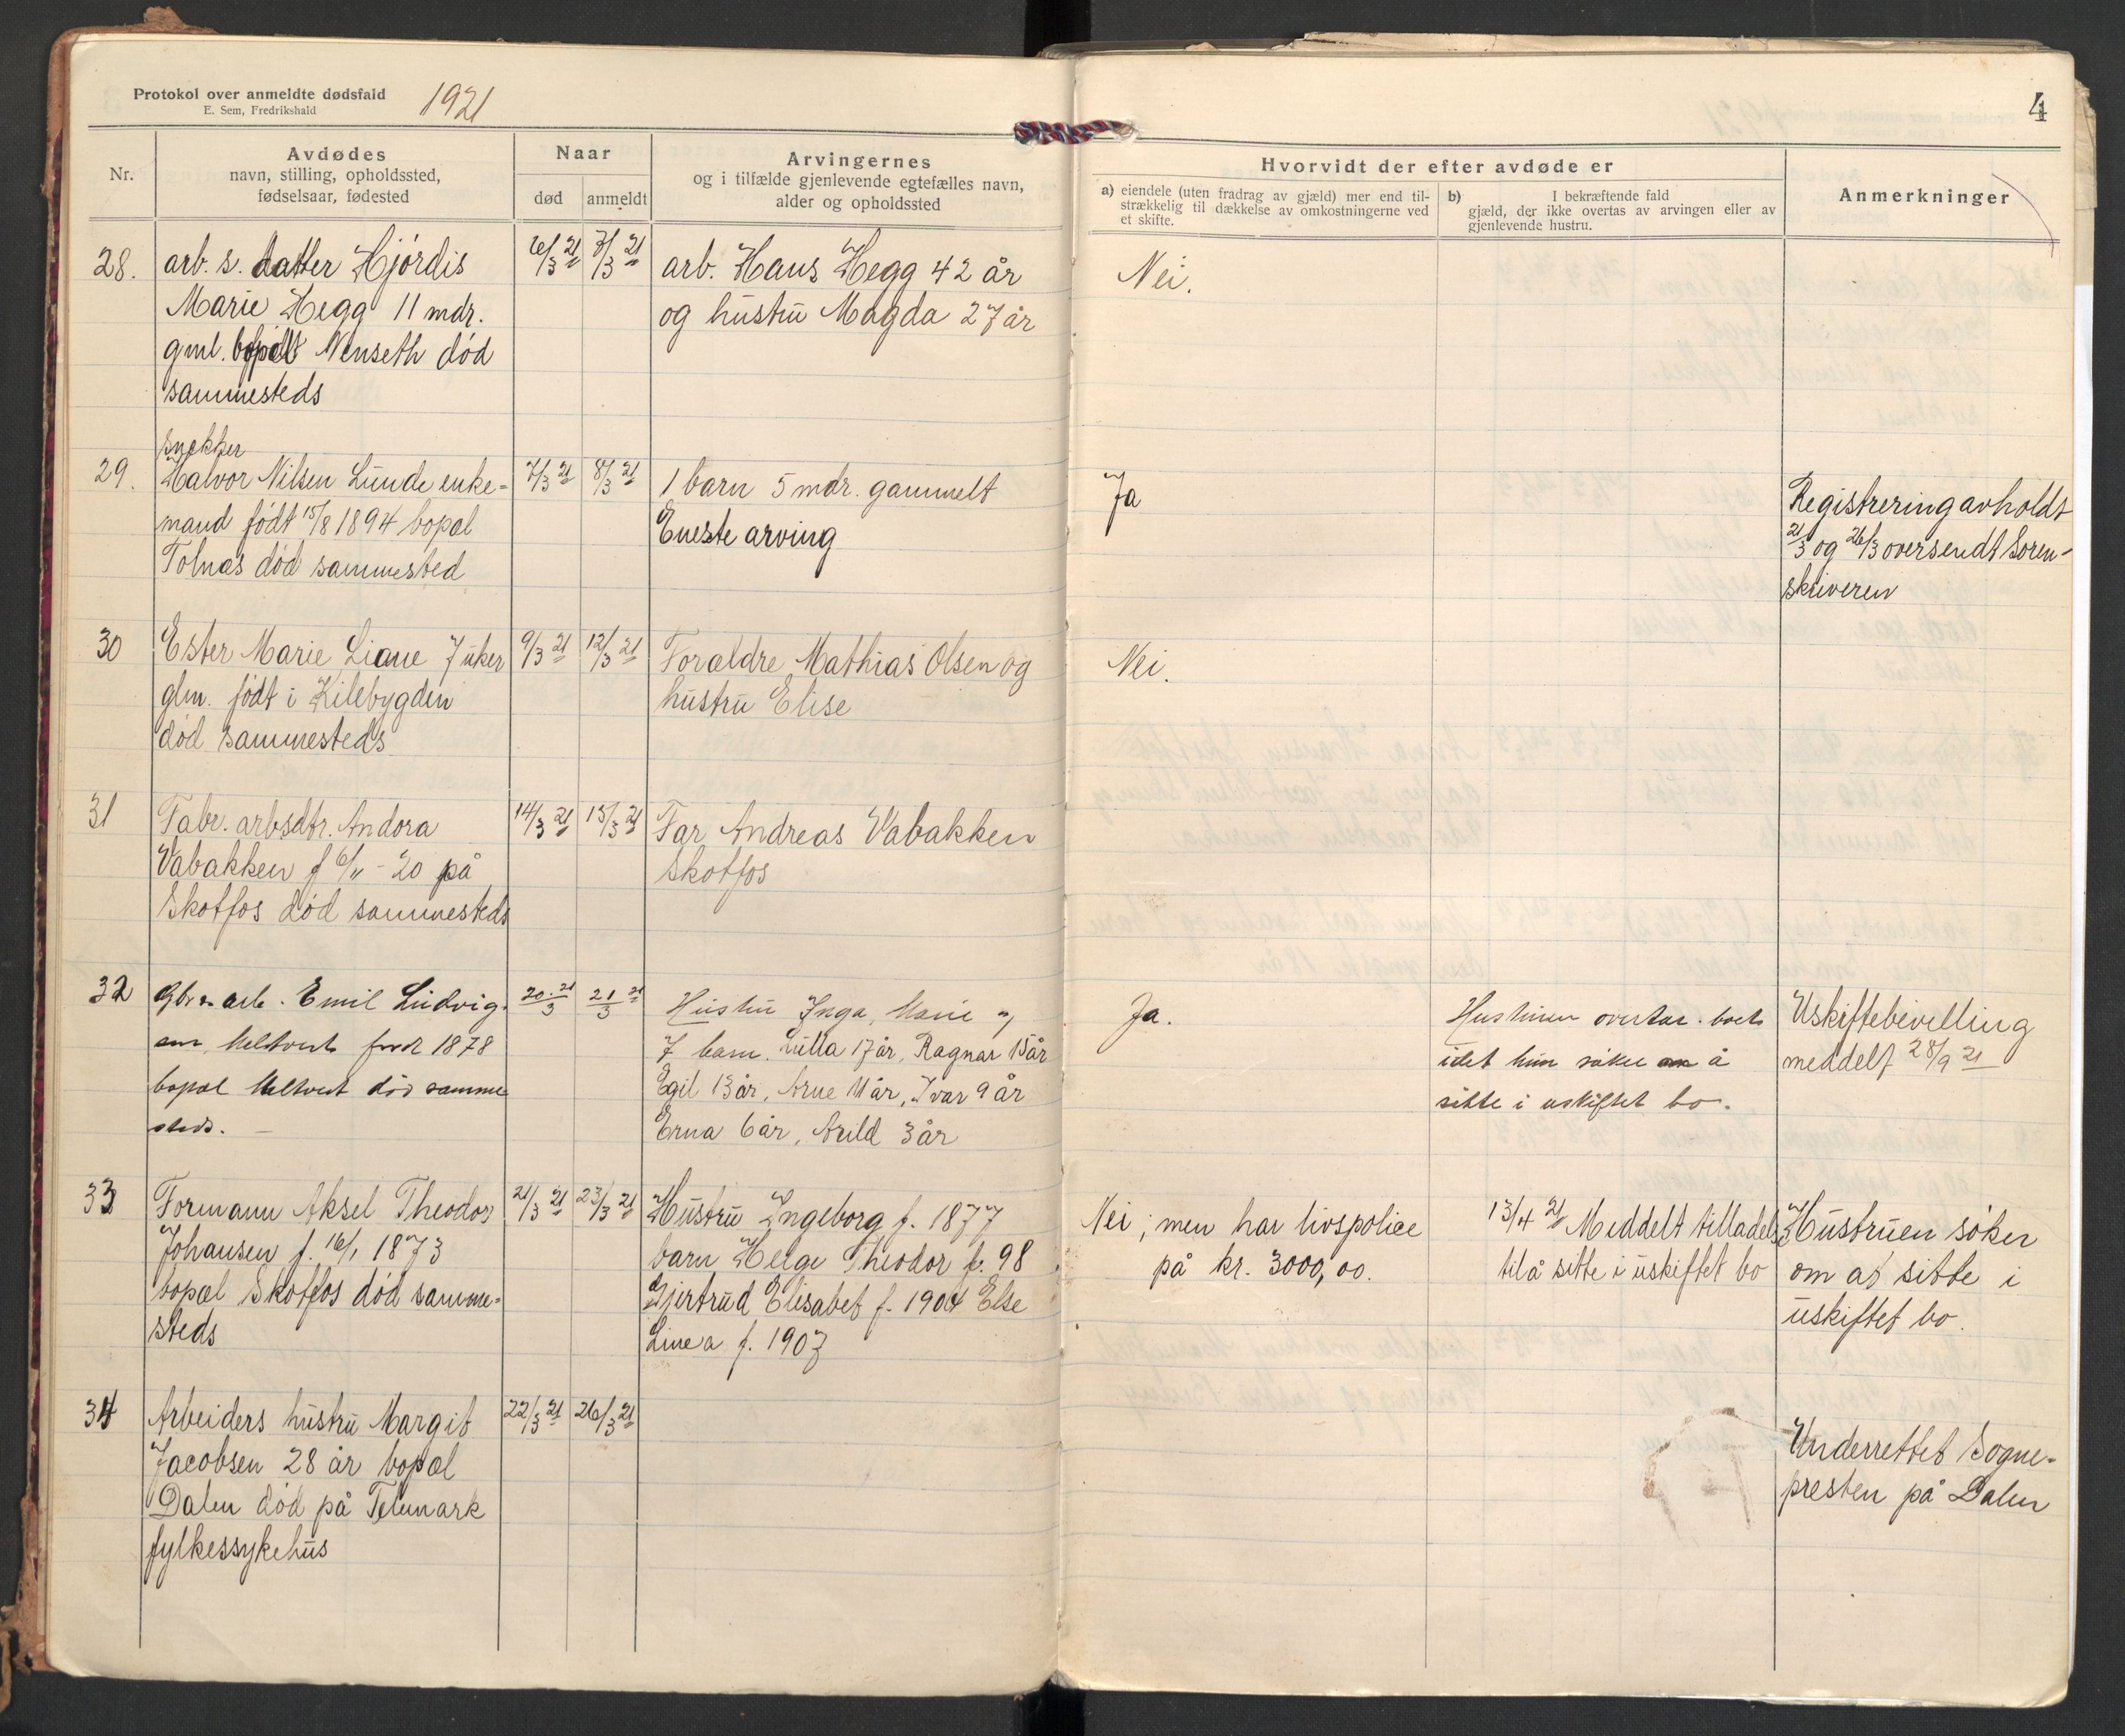 Protokol over anmeldte dødsfald
E. Sem, Fredrikshald
1921
4
Nr.
Avdødes
navn, stilling, opholdssted,
fødselsaar, fødested
Naar
død
anmeldt
Arvingernes
og i tilfælde gjenlevende egtefælles navn,
alder og opholdssted
Hvorvidt der efter avdøde er
a) eiendele (uten fradrag av gjæld) mer end til-
strækkelig til dækkelse av omkostningerne ved
et skifte.
b) I bekræftende fald
gjæld, der ikke overtas av arvingen eller av
gjenlevende hustru.
Anmerkninger
28.
arb. s. datter Hjördis
Marie Hegg 11 mdr.
gml. bopæl Nenseth död
sammesteds
6/3 21
7/3 21
arb. Hans Hegg 42 år
og hustru Magda 27 år
Nei.
29.
snekker
Halvor Nilsen Lunde enke-
mand födt 15/8 1894 bopæl
Tolnæs död sammested
7/3 21
8/3 21
1 barn 5 mdr. gammelt
Eneste arving
Ja
Registrering avholdt
21/3 og 26/3 oversendt Soren-
skriveren
30
Ester Marie Liane 7 uker
glm. födt i Kilebygden
död sammesteds
9/3 21
12/3 21
Forældre Mathias Olsen og
hustru Elise
Nei.
31
Fabr. arbsdtr. Andora
Vabakken f 6/11 - 20 på
Skotfos död sammesteds
14/3 21
15/3 21
Far Andreas Vabakken
Skotfos
32
arb. Emil Ludvig-
sen, født 1878
bopæl død samme
steds.
20/3 21
21/3 21
Hustru Inga Marie og
7 barn. Lulla 17 år, Ragnar 15 år
Egil 13 år, Arne 11 år, Ivar 9 år
Erna 6 år, Arild 3 år
Ja.
Hustruen overtar boet
idet hun søker om å
sitte i uskiftet bo.
Uskiftebevilling
meddelt 28/9 21
33
Formann Aksel Theodor
Johansen f. 16/1 1873
bopæl Skotfos död samme-
steds
21/3 21
23/3 21
Hustru Ingeborg f. 1877
barn Helge Theodor f. 98
Gjertrud Elisabet f. 1904 Else
Linea f. 1907
Nei; men har livspolice
på kr. 3000,00.
13/4 21 Meddelt tilladelse
til å sitte i uskiftet bo
Hustruen söker
om at sitte i
uskiftet bo.
34
Arbeiders hustru Margit
Jacobsen 28 år bopæl
Dalen död på Telemark
fylkessykehus
22/3 21
26/3 21
Underrettet Sogne-
presten på Dalen